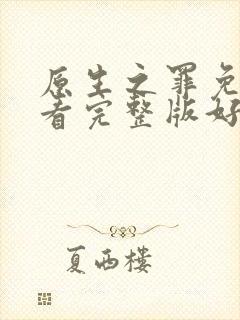 原生之罪免
看完整版好
夏西楼